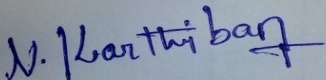 N. Karthiban